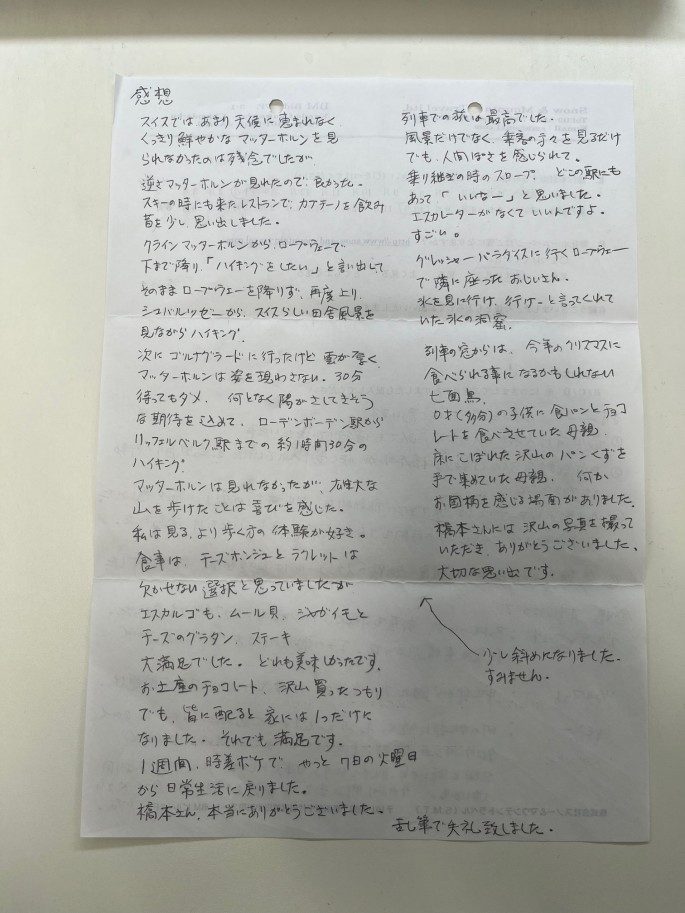 感想
スイスでは、あまり天候に恵まれなく
くっきり鮮やかなマッターホルンを見
られなかったのは残念でしたが
逆さマッターホルンが見れたので良かった。
スキーの時にも来たレストランで、カプチーノを飲み
昔を少し思い出しました。
クラインマッターホルンからロープウェーで
下まで降り、「ハイキングをしたい」と言い出して
そのままロープウェーを降りず、再度上り、
シュバルツゼーから、スイスらしい田舎風景を
見ながらハイキング。
次にゴルナグラードに行ったけど雲が厚く
マッターホルンは姿を現わさない。30分
待ってもダメ、何となく陽がさしてきそう
な期待を込めて、ローデンボーデン駅から
リッフェルベルク駅までの約1時間30分の
ハイキング。
マッターホルンは見れなかったが、雄大な
山を歩けたことは喜びを感じた。
私は見るより歩く方の体験が好き。
食事は、チーズホンジュとラクレットは
欠かせない選択と思っていましたが
エスカルゴも、ムール貝、ジャガイモと
チーズのグラタン、ステーキ
大満足でした。どれも美味しかったです。
お土産のチョコレート、沢山買ったつもり
でも、皆に配ると家には1つだけに
なりました。それでも満足です。
1週間、時差ボケで、やっと7日の火曜日
から日常生活に戻りました。
橋本さん、本当にありがとうございました。
列車での旅は最高でした。
風景だけでなく、乗客の方々を見るだけ
でも、人間ぽさを感じられて。
乗り継ぎの時のスロープ。どこの駅にも
あって「いいなー」と思いました。
エスカレーターがなくていいんですよ。
すごい。
グレッシャーパラダイスに行くロープウェー
で隣に座ったおじいさん。
氷を見に行け、行けーと言ってくれて
いた氷の洞窟。
列車の窓からは、今年のクリスマスに
食べられる事になるかもしれない
七面鳥。
0才(多分)の子供に食パンとチョコ
レートを食べさせていた母親。
床にこぼれた沢山のパンくずを
手で集めていた母親。何か
お国柄を感じる場面がありました。
橋本さんには沢山の写真を撮って
いただき、ありがとうございました。
大切な思い出です。
少し斜めになりました。
すみません。
乱筆で失礼致しました。